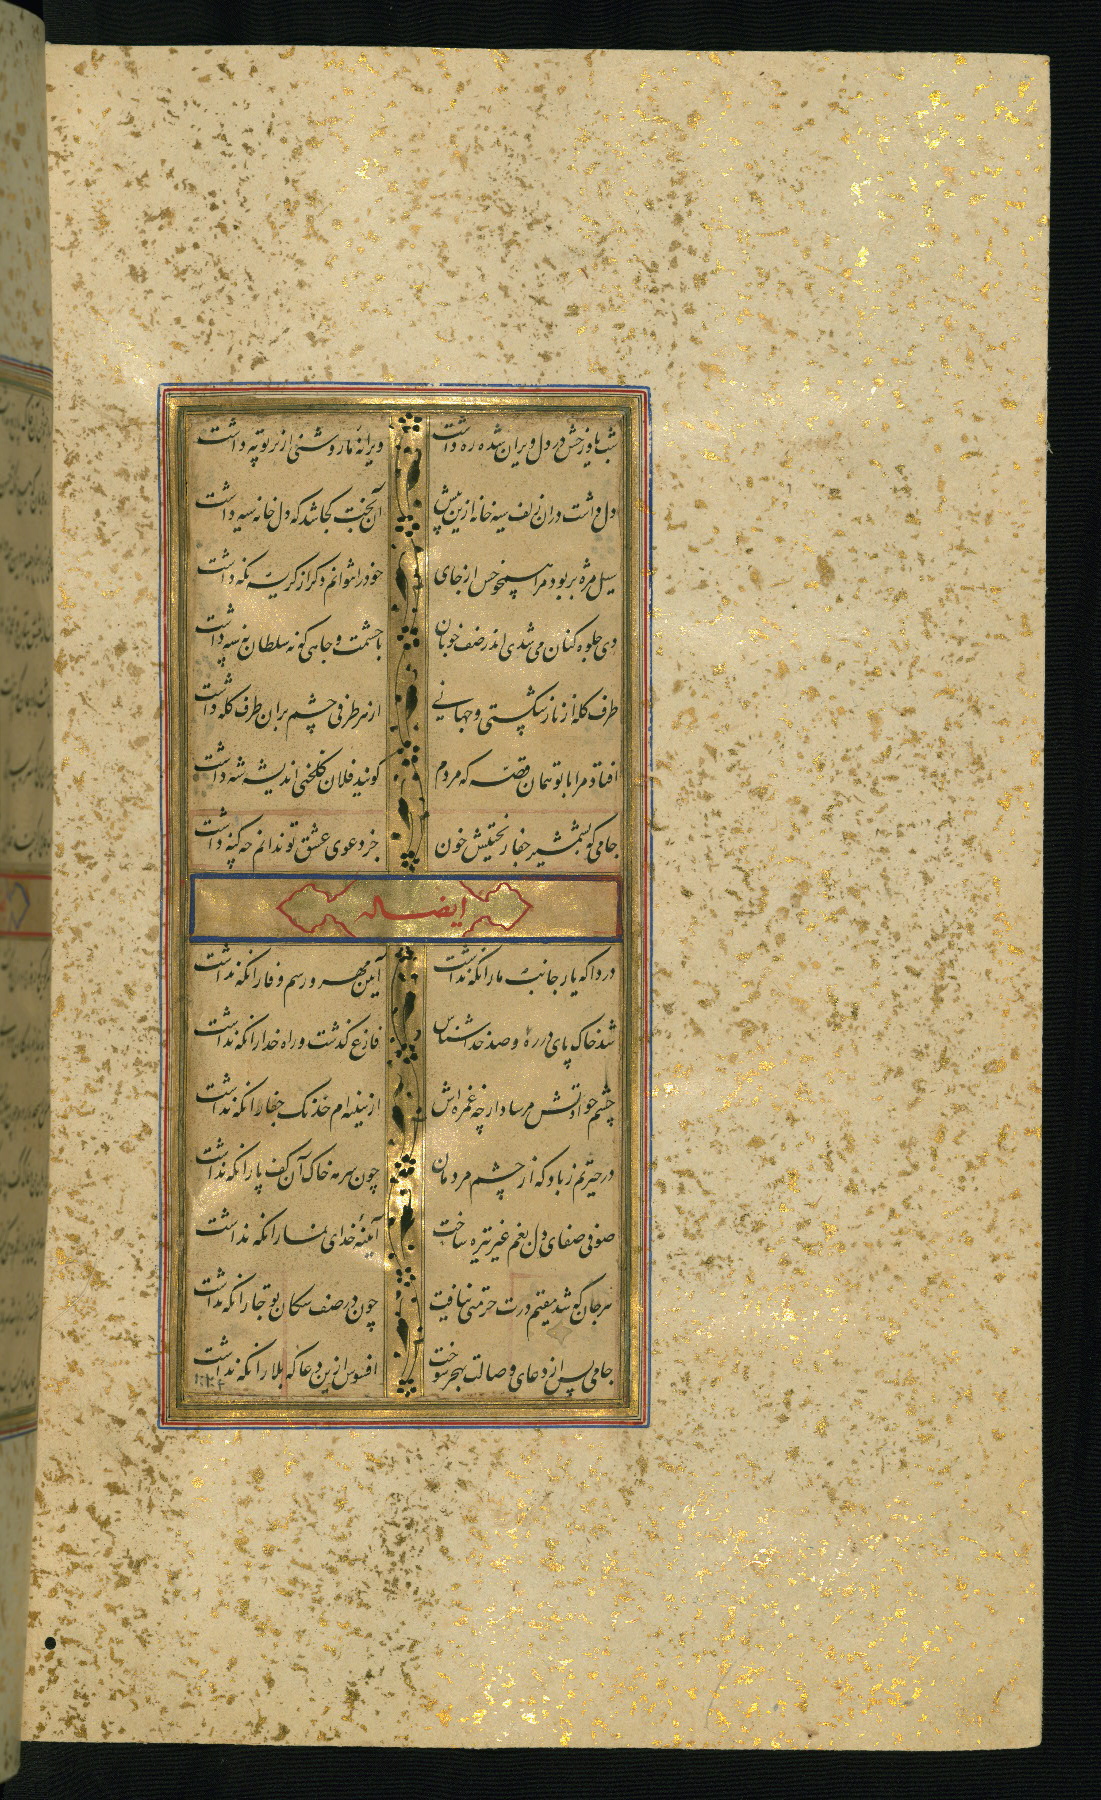 شب یاد رخش در دل ویران شده ره داشت ویرانه ما روشنی از پرتو مه داشت
دل داشت در ان زلف سیه خانه ازین پیش آن بخت کجا شد که دل خانه سیه داشت
سیل مژه بربود مرا همچو خس از جای خود را نتوانم دکر از کریه نکه داشت
دی جلوه کنان می شدی اندر صف خوبان با حشمت و جاهی که نه سلطان نه سپه داشت
طرف کله از ناز شکستی و جهانی از هر طرفی چشم بران طرف کله داشت
افتاد مرا با تو همان قصه که مردم کویند فلان کلخنی اندیشه شه داشت
جامی که بشمشیر جفا ریختیش خون جز دعوی عشق تو ندانم چه کنه داشت
ایضا له
دردا که یار جانب ما را نکه نداشت آیین مهر و رسم وفا را نکه نداشت
شد خاک پای در ره او صد خداشناس فارغ گذشت و راه خدا را نکه نداشت
چشم حوادثش مرسا دار چه غمزه اش از سینه ام خدنک جفا را نکه نداشت
در حیرتم ز باد که از چشم مردمان چون سرمه خاک آن کف پا را نکه نداشت
صوفی صفای دل بغم غیر تیره ساخت آیینه خدای نما را نکه نداشت
هر جان که شد مقیم درت حرمتی نیافت چون در صف سکان تو جا را نکه نداشت
جامی پس از دعای وصالت بهجر سوخت افسوس ازین دعا که بلا را نکه نداشت